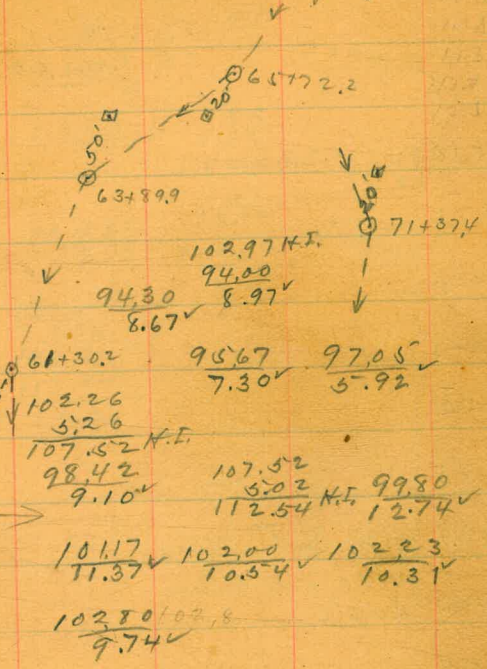 65+72.2
20'
50'
63+89.9
20'
71+37.4
102.97 H.I.
94.00
8.97✓
94.30
8.67✓
61+30.2
95.67
7.30✓
97.05✓
5.92
102.26
5.26
107.52 H.I.
98.42
9.10✓
107.52
5.02
112.54 H.I.
99.80
12.74✓
101.17
11.37✓
102.00
10.54✓
102.23
10.31✓
102.80 102.8
9.74✓